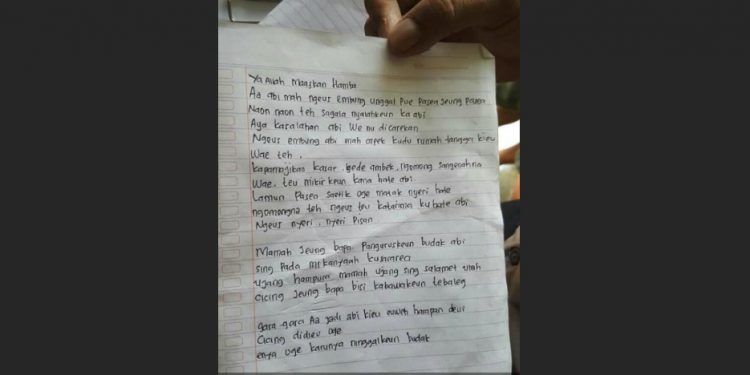 Ya Allah Maafkan Hamba
Aa abi mah ngeus embung unggal Poe Pasea jeung Pasea
Naon naon teh sagala nyalahkeun ka abi
Aya kasalahan abi We nu dicarekan
Ngeus embung abi mah capek kudu rumah tangga kieu
Wae teh.
kasar, gede ambek, ngomong sangenahna
Wae, teu mikirkeun kana hate abi.
Lamun Pasea saetik oge matak nyeri hate
ngomongna teh ngeus teu katarima ku hate abi
Ngeus nyeri, nyeri Pisan
Mamah jeung bapa Pangeruskeun budak abi
sing Pada mikanyaah
ujang hampura mamah ujang sing salamet
cicing jeung bapa bisi kabawakeun
gara gara Aa jadi abi kieu euweh hampan deui
Cicing didieu oge
enya oge karunya ninggalkeun budak